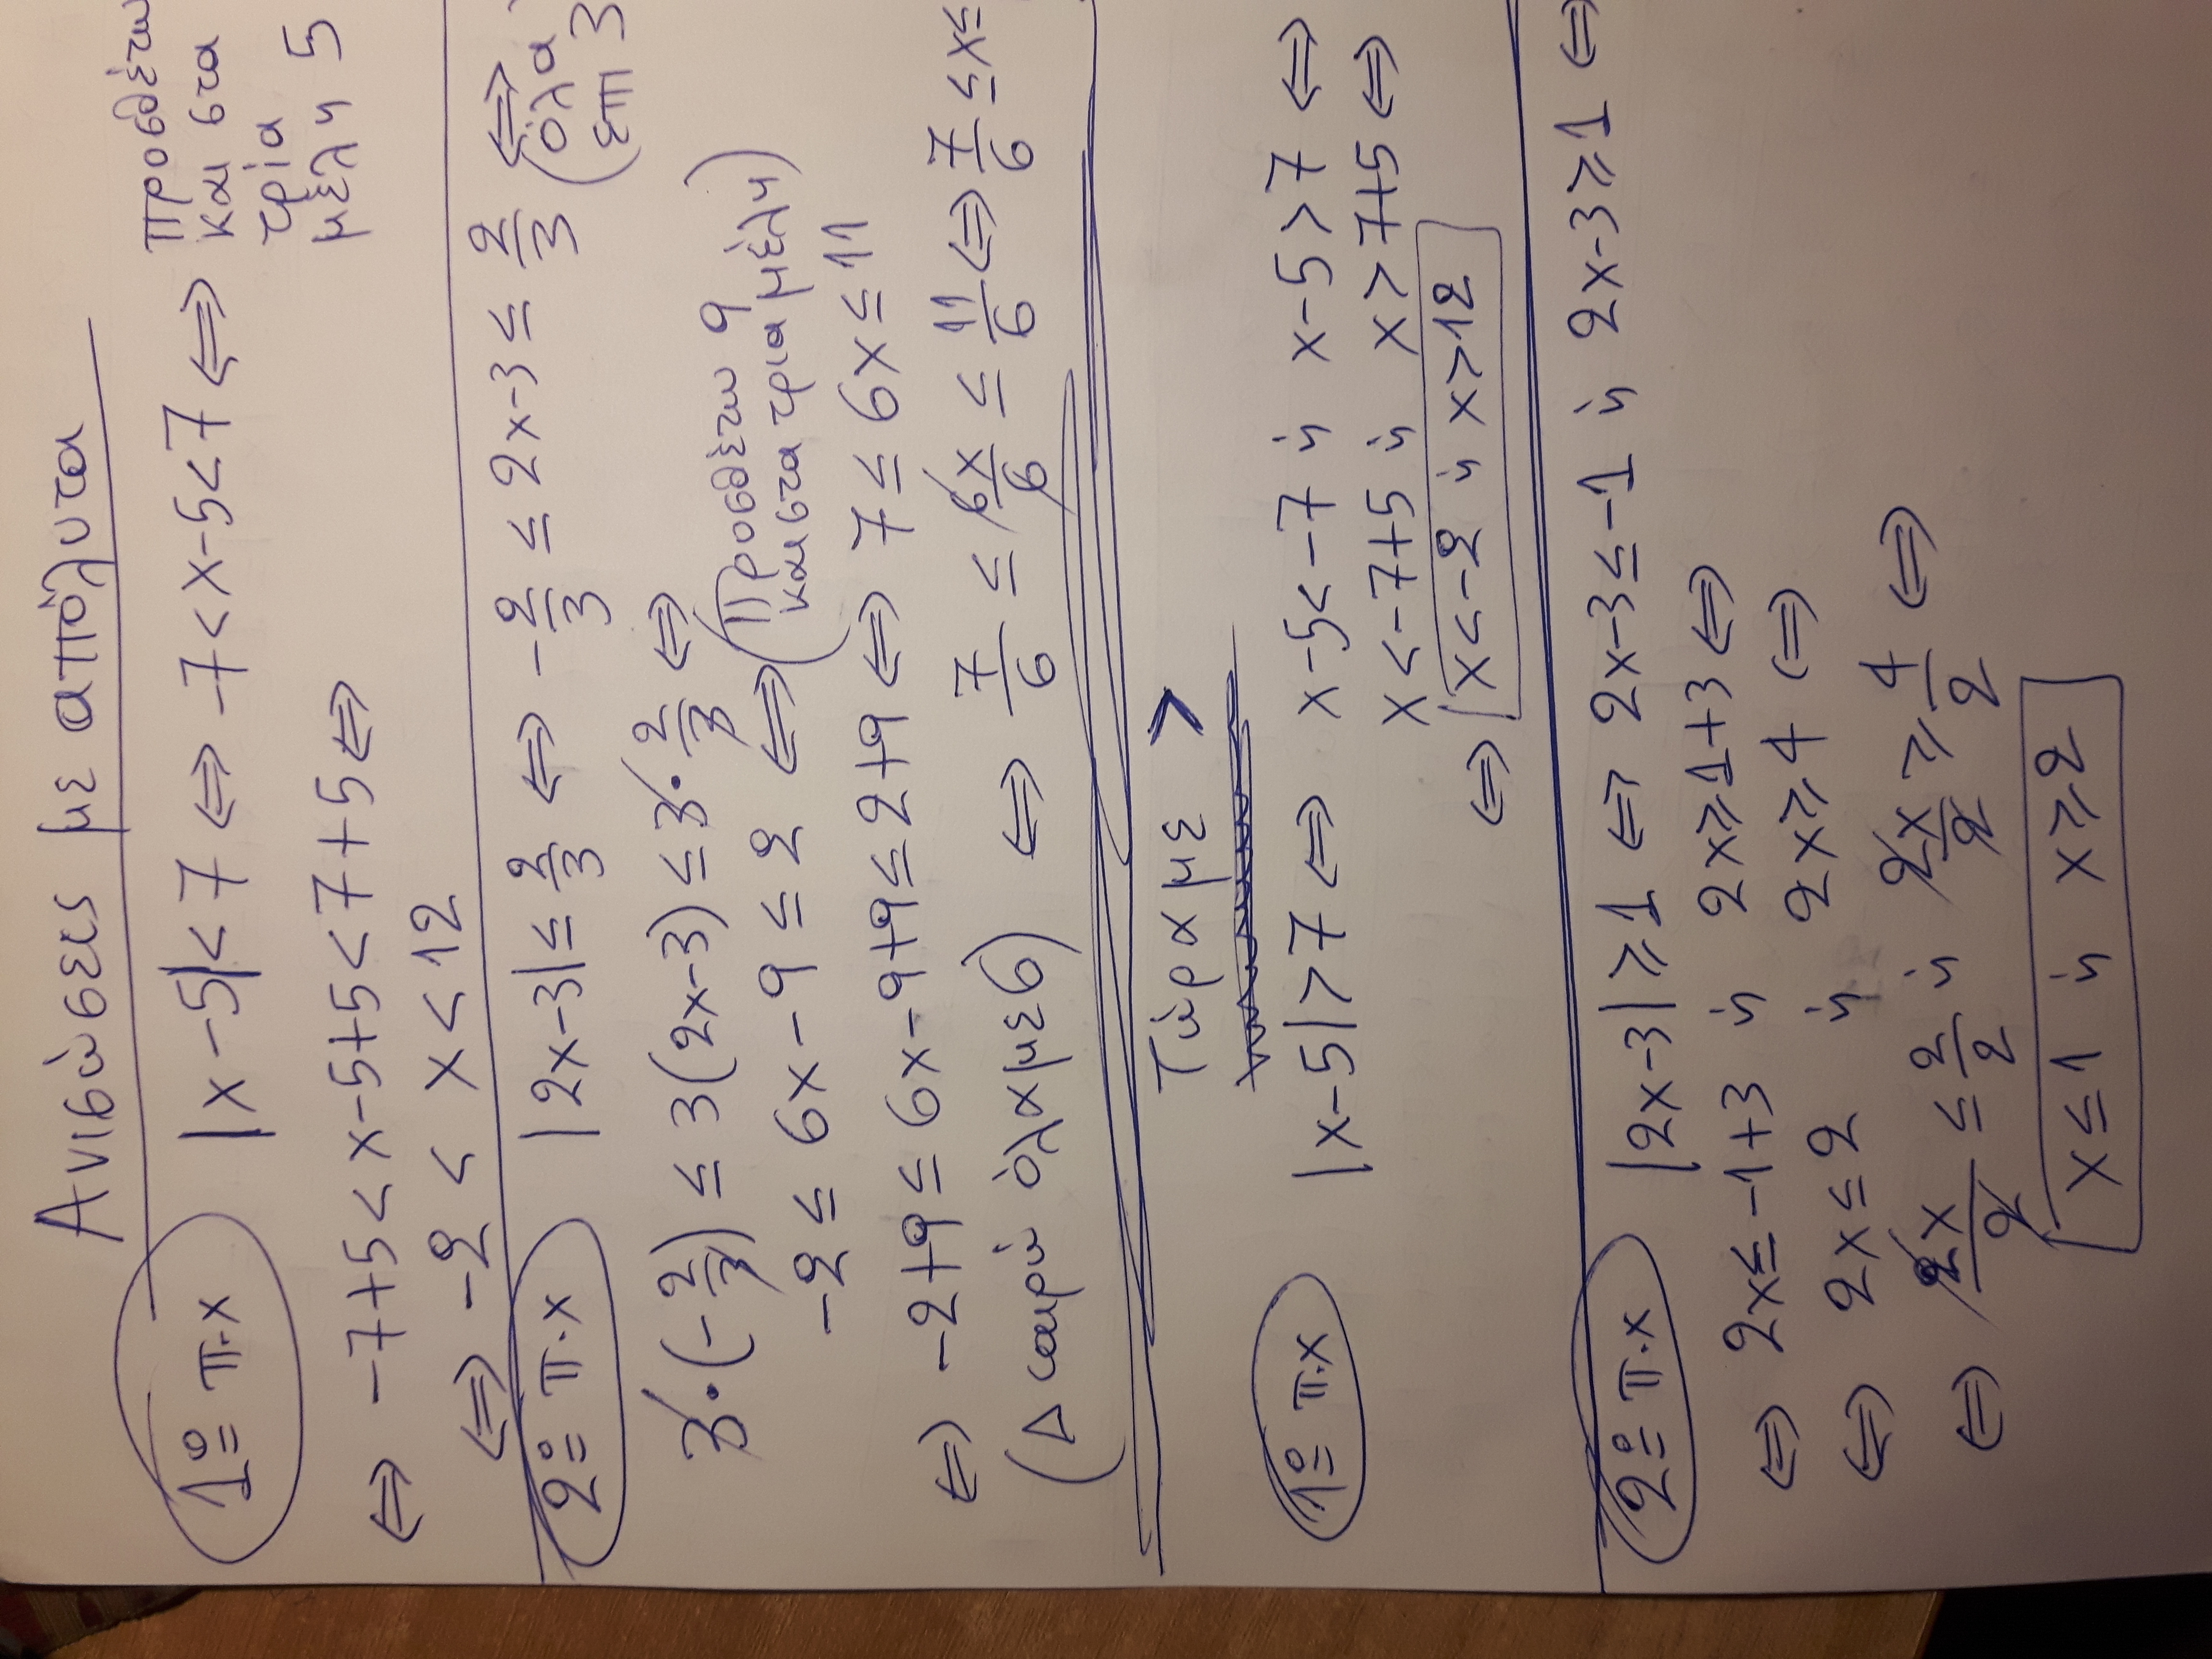 Ανισώσεις με απόλυτα
1ο π.χ |x-5|<7 ⇔ -7<x-5<7 ⇔ προσθέτω
και στα
τρία
μέλη 5
⇔ -7+5<x-5+5<7+5⇔
⇔ -2 < x<12
2ο π.χ |2x-3|≤ 2/3 ⇔ -2/3 ≤ 2x-3 ≤ 2/3 ⇔
(όλα
επί 3
3·(-2/3) ≤ 3(2x-3) ≤ 3·2/3 ⇔
-2 ≤ 6x-9 ≤ 2 ⇔ (Προσθέτω 9
και στα τρία μέλη)
⇔ -2+9 ≤ 6x-9+9 ≤ 2+9 ⇔ 7 ≤ 6x ≤ 11
(Διαιρώ όλα με 6) ⇔ 7/6 ≤ 6x/6 ≤ 11/6 ⇔ 7/6 ≤x≤
Τώρα με >
1ο π.χ |x-5|>7 ⇔ x-5<-7 ή x-5>7 ⇔
x<-7+5 ή x>7+5 ⇔
⇔ x<-2 ή x>12
2ο π.χ |2x-3|≥1 ⇔ 2x-3≤-1 ή 2x-3≥1 ⇔
⇔ 2x≤-1+3 ή 2x≥1+3 ⇔
⇔ 2x≤2 ή 2x≥4 ⇔
⇔ 2x/2 ≤ 2/2 ή 2x/2 ≥ 4/2 ⇔
x≤1 ή x≥2